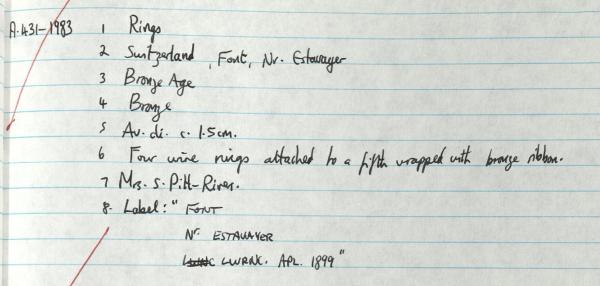 A.431-1983 1 Rings
2 Switzerland, Font, Nr. Estavayer
3 Bronze Age
4 Bronze
5 Av. di. c. 1.5cm.
6 Four wire rings attached to a fifth wrapped with bronze ribbon.
7 Mrs. S. Pitt-Rivers.
8. Label: " FONT
Nr ESTAVAYER
APL. 1899"